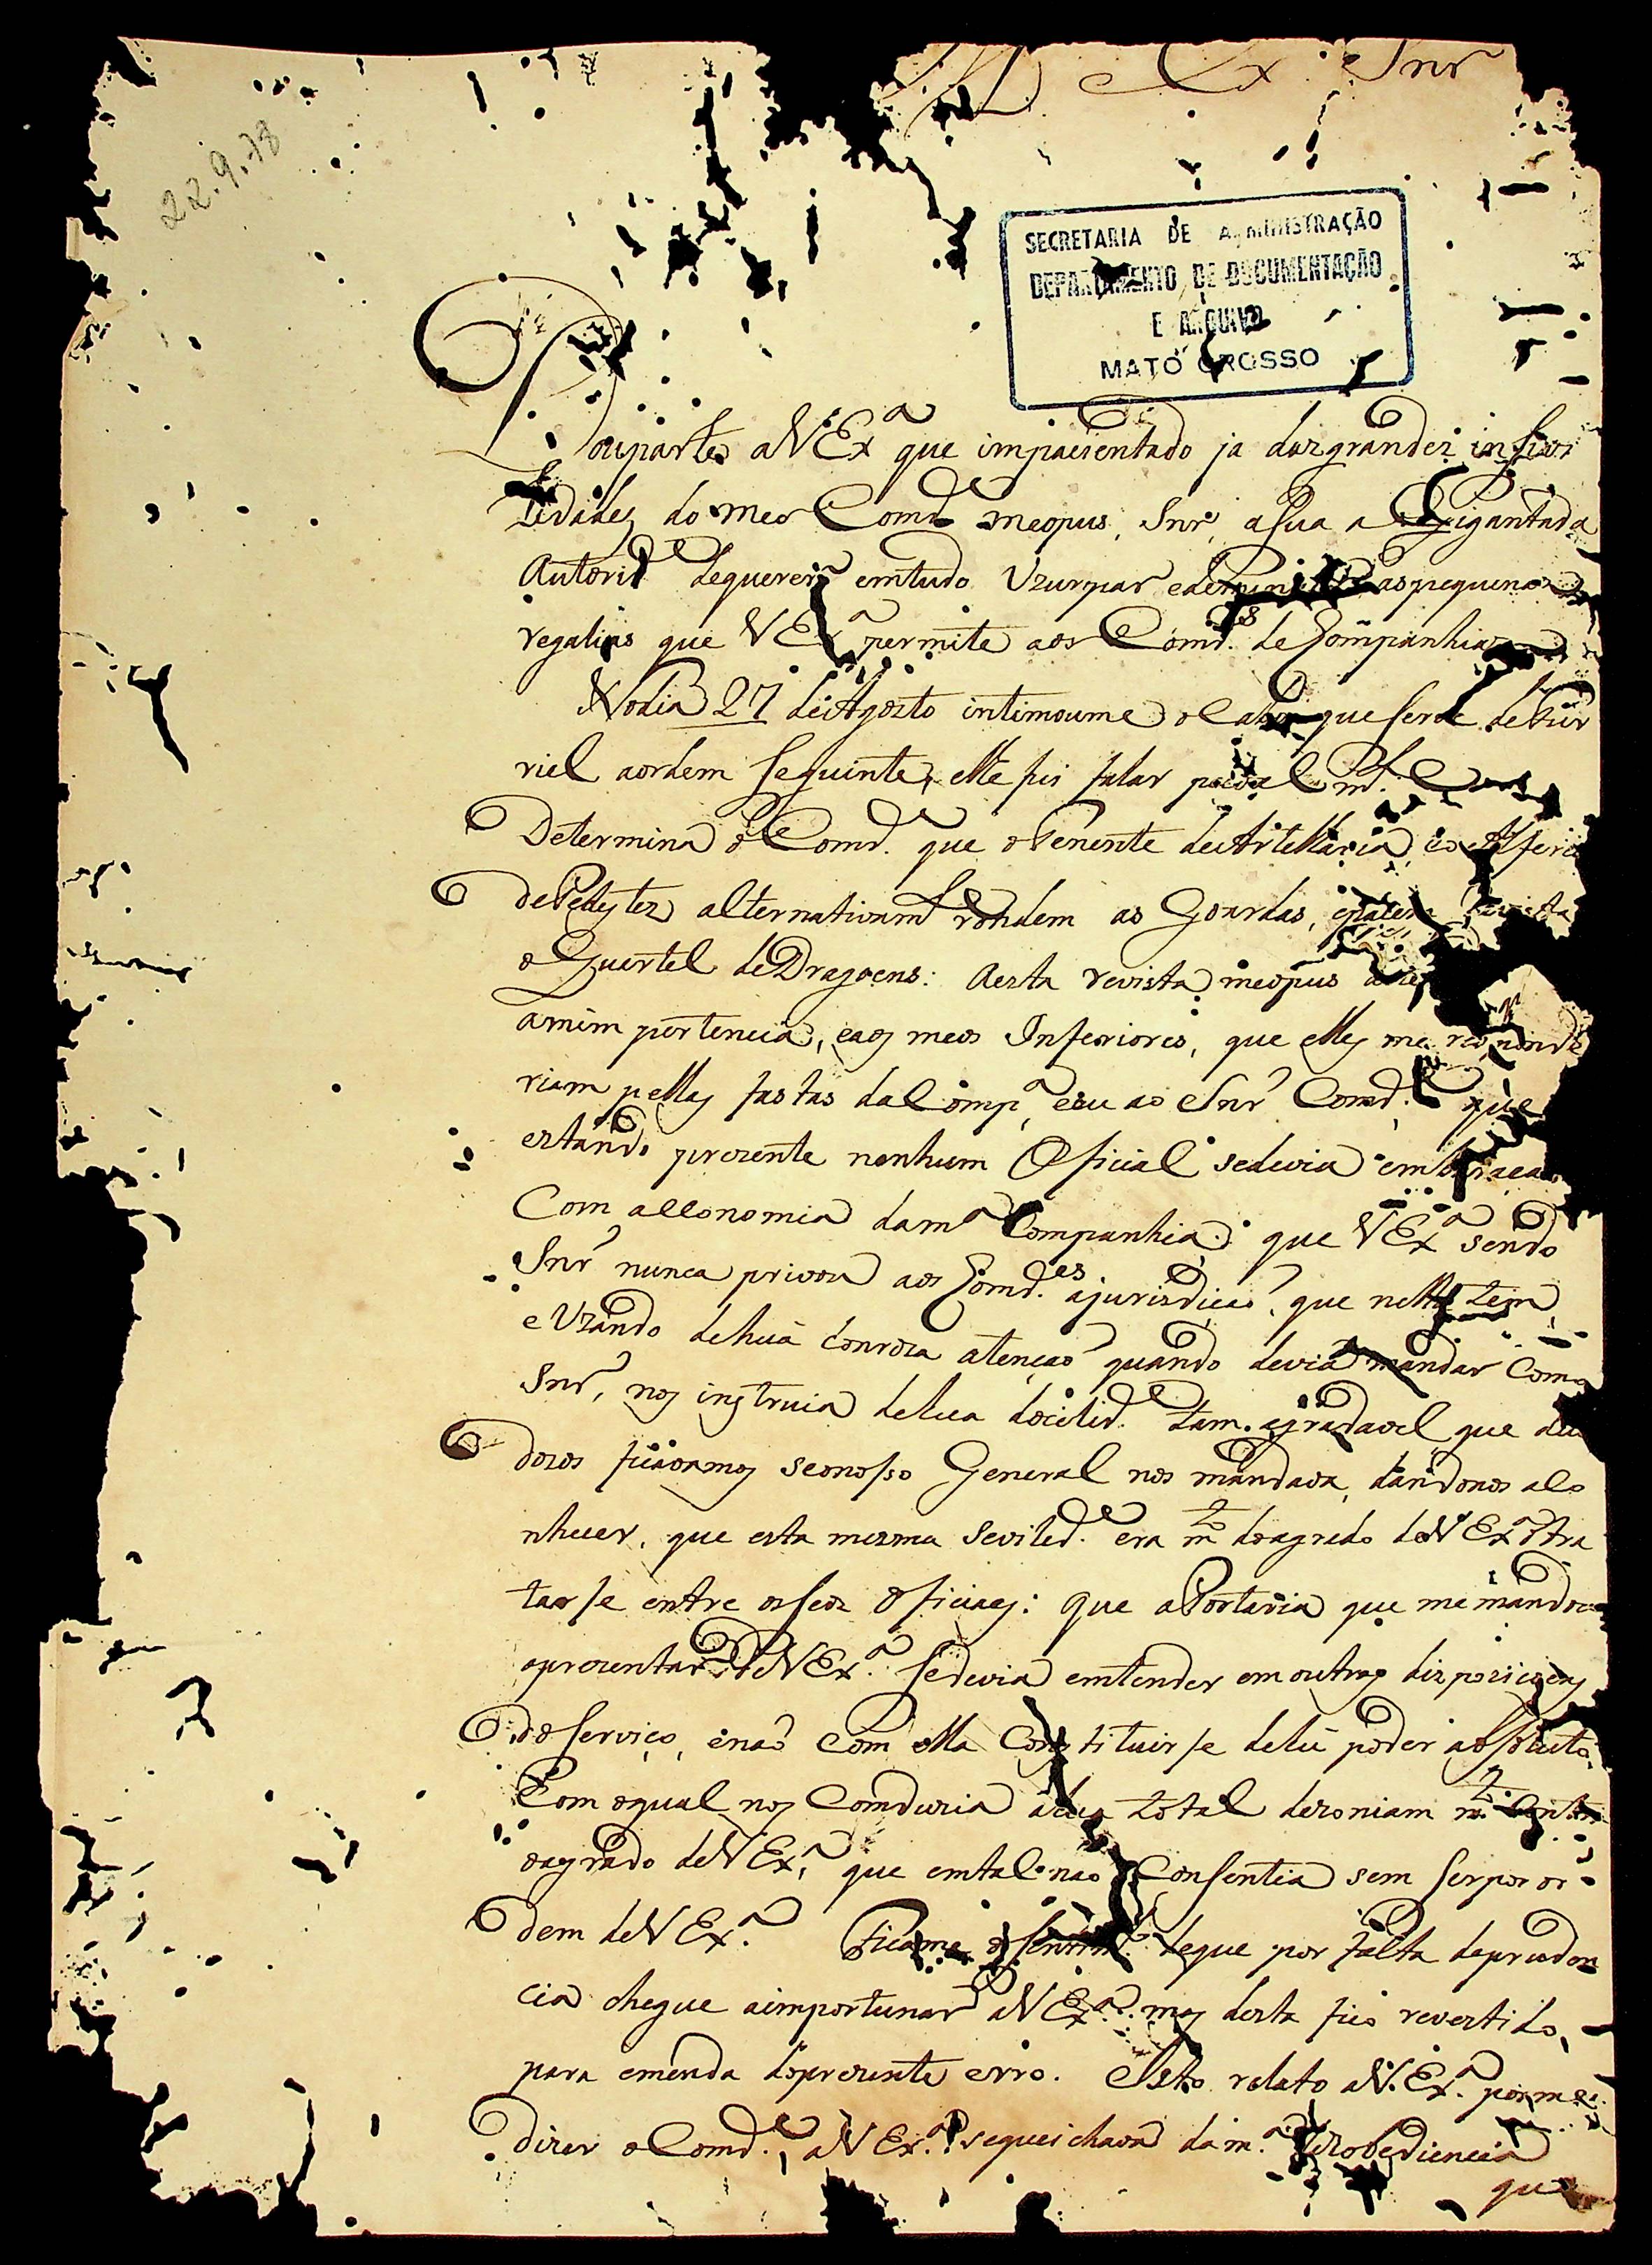 Ex Snr
22.9.78
SECRETARIA DE ADMINISTRAÇÃO
DEPARTAMENTO DE DOCUMENTAÇÃO
E ARQUIVO
MATO GROSSO
Douparte aVEx.ª que impacientado ja dasgrandes insivi
lidades do meo Comd.e meopus, Snr, asua agigantada
Autorid.e dequerer emtudo Uzurpar aspequenas
regalias que VEx.ª permite aos Comd.es deCompanhias
Nodia 27 deAgosto intimoume o Cabo queserve deFur
riel aordem seguinte, elle fis falar
Determina oComd.e que oTenente deArtelharia, eo Alferes
dePedestez alternativamt.e rondem as Goardas,
oQuartel deDragoens: Aesta revista meopus
amim pertencia, eaos meos Inferiores, que elles me responde
riam pellas faltas daComp.ª, eeu ao Snr Comd.e que
estando prezente nenhum Oficial sedevia embaraçar
Com aeconomia dam.ª Companhia: que VEx.ª sendo
Snr nunca privou aos Comd.es ajurisdicaõ, que nella tem,
e Uzando dehuã honroza atençaõ quando devia mandar Como
Snr, nos instruia dehua docilid.e tam agradavel, que
dozos ficavamos seonosso General nos mandava, dandonos aCo
nhecer, que esta mesma Sevilid.e era m.to doagrado deVEx.ª tra
tarse entre osseos Oficiaes: que aPortaria que memandou
aprezentar deVEx.ª sedevia emtender emoutras dispoziçoens
doServiço, enaõ Com ella Constituirse dehũ poder absoluto,
Com oqual nos Comduzia ahua total dezoniam m.to Contra
oagrado deVEx.ª, que emtal naõ Consentia sem serpor or
dem deVEx.ª Ficame osentim.to deque por falta deprudon
cia chegue aimportunar aVEx.ª: mas desta fico revestido,
para emenda doprezente erro. Isto relato aV.Ex.ª porme
dizer oComd.e, aVEx.ª sequeichava dam.ª dezobediencia
que